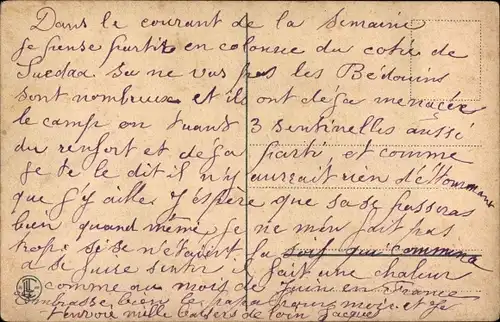 Dans le courant de la Semaine
je pense partir en colonne du coté de
Suedaa sa ne vas pas les Bédouins
sont nombreux et ils ont deja menacée
le camp en tuant 3 sentinelles aussi
du renfort et deja parti et comme
je te le dit il n'y aurrait rien d'éttonnant
que j'y aille, j'éspère que sa se passeras
bien quand même, je ne m'en fait pas
trop si se n'etaient la soif qui commence
a se faire sentir il fait une chaleur
comme au mois de Juin en France
Embrasse bien le papa pour moi et je
t'envoie mille baisers de loin Jacques